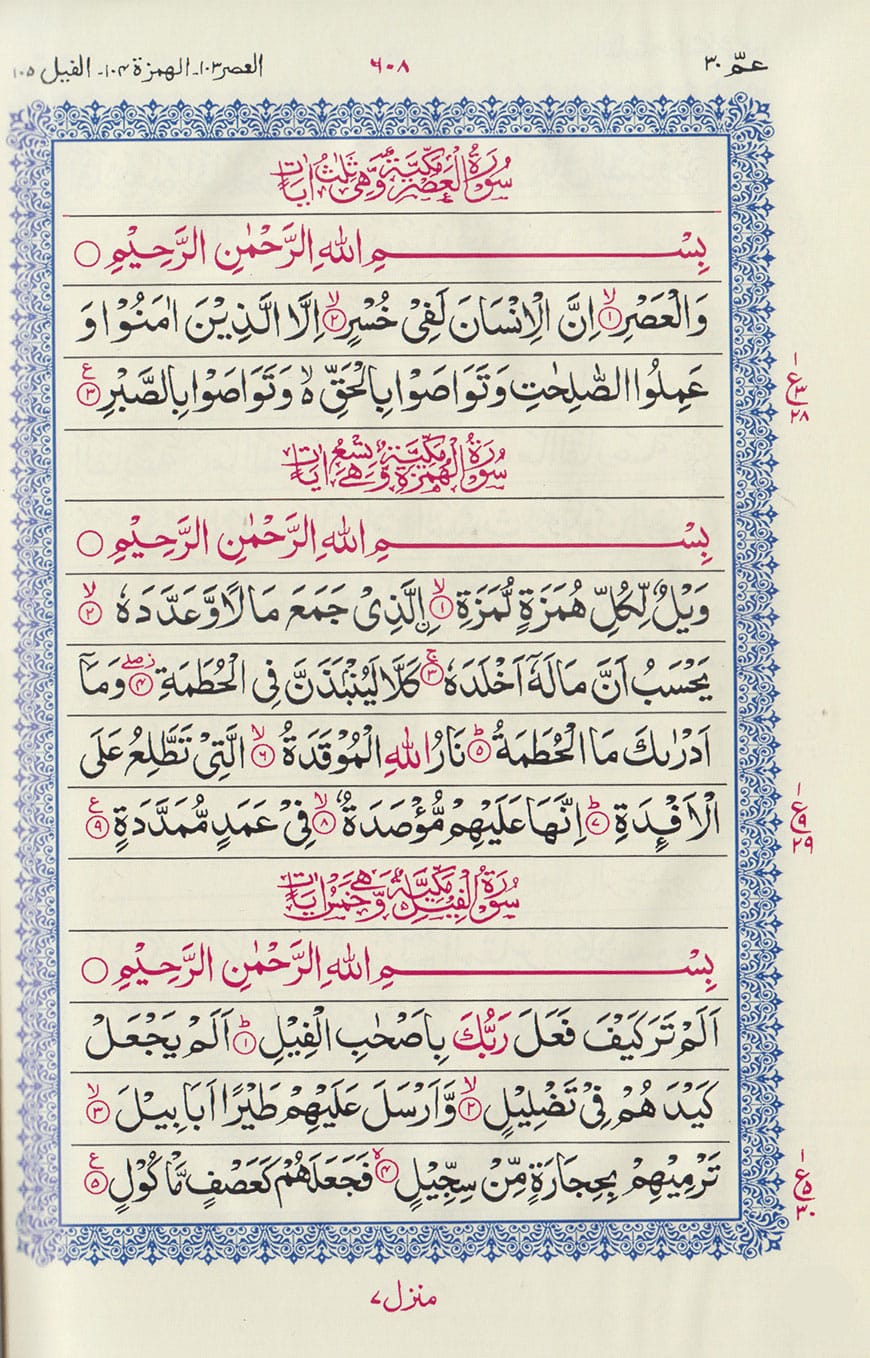 عمّ ٣٠
٦٠٨
العصر ١٠٣۔ الهمزة ١٠٤۔ الفيل ١٠٥
سُوْرَةُ الْعَصْرِ مَكِّيَّةٌ وَّهِيَ ثَلٰثُ اٰيَاتٍ
بِسْمِ اللهِ الرَّحْمٰنِ الرَّحِيْمِ ○
وَالْعَصْرِ ۙ‏﴿١﴾ اِنَّ الْاِنْسَانَ لَفِيْ خُسْرٍ ۙ‏﴿٢﴾ اِلَّا الَّذِيْنَ اٰمَنُوْا وَ
عَمِلُوا الصّٰلِحٰتِ وَتَوَاصَوْا بِالْحَقِّ ۙ۬ وَتَوَاصَوْا بِالصَّبْرِ ﴿٣﴾ ع
ع ٣
٢٨
سُوْرَةُ الْهُمَزَةِ مَكِّيَّةٌ وَّهِيَ تِسْعُ اٰيَاتٍ
بِسْمِ اللهِ الرَّحْمٰنِ الرَّحِيْمِ ○
وَيْلٌ لِّكُلِّ هُمَزَةٍ لُّمَزَةِ ۙ‏﴿١﴾ ِۨالَّذِيْ جَمَعَ مَالًا وَّعَدَّدَهٗ ۙ‏﴿٢﴾
يَحْسَبُ اَنَّ مَالَهٗٓ اَخْلَدَهٗ ۚ‏﴿٣﴾ كَلَّا لَيُنْۢبَذَنَّ فِي الْحُطَمَةِ ۖ‏﴿٤﴾ وَمَآ
اَدْرٰىكَ مَا الْحُطَمَةُ ؕ‏﴿٥﴾ نَارُ اللهِ الْمُوْقَدَةُ ۙ‏﴿٦﴾ الَّتِيْ تَطَّلِعُ عَلَى
الْاَفْـِٕدَةِ ؕ‏﴿٧﴾ اِنَّهَا عَلَيْهِمْ مُّؤْصَدَةٌ ۙ‏﴿٨﴾ فِيْ عَمَدٍ مُّمَدَّدَةٍ ﴿٩﴾ ع
ع ٩
٢٩
سُوْرَةُ الْفِيْلِ مَكِّيَّةٌ وَّهِيَ خَمْسُ اٰيَاتٍ
بِسْمِ اللهِ الرَّحْمٰنِ الرَّحِيْمِ ○
اَلَمْ تَرَ كَيْفَ فَعَلَ رَبُّكَ بِاَصْحٰبِ الْفِيْلِ ؕ‏﴿١﴾ اَلَمْ يَجْعَلْ
كَيْدَهُمْ فِيْ تَضْلِيْلٍ ۙ‏﴿٢﴾ وَّاَرْسَلَ عَلَيْهِمْ طَيْرًا اَبَابِيْلَ ۙ‏﴿٣﴾
تَرْمِيْهِمْ بِحِجَارَةٍ مِّنْ سِجِّيْلٍ ﴿٤﴾ فَجَعَلَهُمْ كَعَصْفٍ مَّاْكُوْلٍ ﴿٥﴾ ع
ع ٥
٣٠
منزل ٧